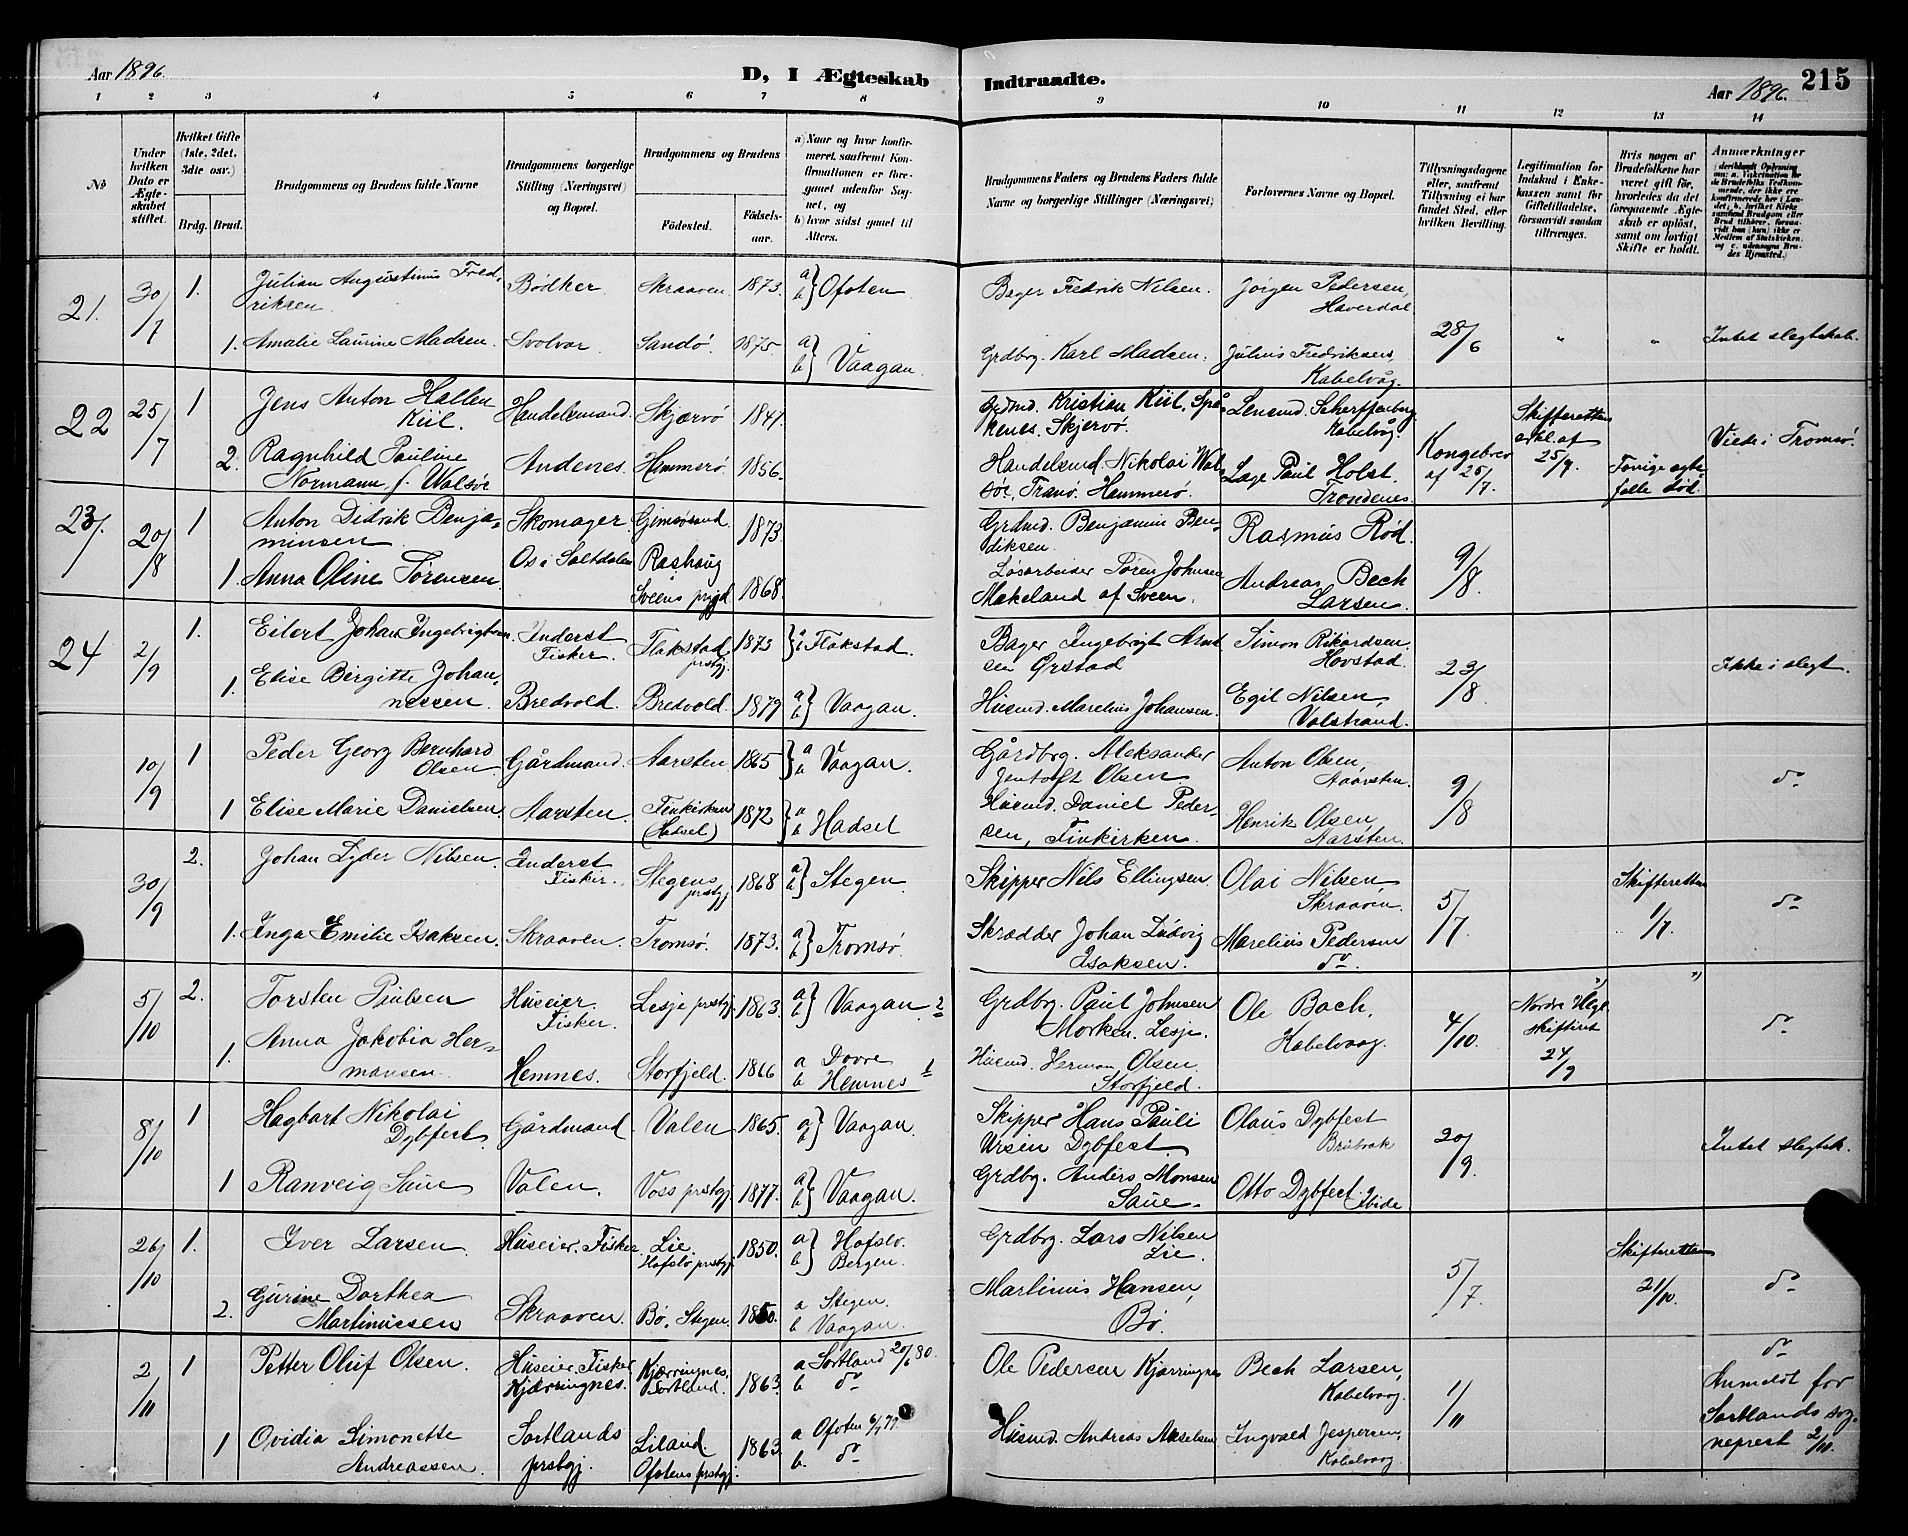 Aar 1896.
D, I Ægteskab
Indtraadte.
Aar 1896.
215
1 2 3 4 5 6 7 8 9 10 11 12 13 14
No
Under hvilken Dato er Ægteskabet stiftet.
Hvilket Gifte (1ste, 2det, 3die osv.)
Brdg. Brud.
Brudgommens og Brudens fulde Navne
Brudgommens borgerlige Stilling (Næringsvei) og Bopæl.
Brudgommens og Brudens
Fødested.
Fødselsaar.
a) Naar og hvor konfirmeret, saafremt Konfirmationen er foregaaet udenfor Sognet, og
b) hvor sidst gaaet til Alters.
Brudgommens Faders og Brudens Faders fulde Navne og borgerlige Stillinger (Næringsvei)
Forlovernes Navne og Bopæl.
Tillysningsdagene eller, saafremt Tillysning ei har fundet Sted, efter hvilken Bevilling.
Legitimation for Indskud i Enkekassen samt for Giftetilladelse, forsaavidt saadan tiltrænges.
Hvis nogen af Brudefolkene har været gift før, hvorledes da det foregaaende Ægteskab er opløst, samt om lovligt Skifte er holdt.
Anmærkninger
21. 30/7 1. Julian Augustinus Fredriksen. Bødker Skraaven 1873. a b } Ofoten Bager Fedrik Nilsen. Jørgen Pedersen, Haverdal
1. Amalie Laurine Madsen. Svolvær. Sandø. 1875. a b } Vaagan. Grdbrg. Karl Madsen. Julius Fredriksen, Kabelvåg. 28/6 " " Intet slegtskab.
22 25/7 1 Jens Anton Hallen Kiil. Handelsmand. Skjærvø 1841. Kristian Kiil, Spåkenes. Skjervø. Lensmd. Scherffenberg Kabelvåg. Skifteretten erkl. af 25/7.
2. Ragnhild Pauline Normann, f. Walsøe Andenes. Hammerø. 1856. Handelsmd. Nikolai Walsøe, Tranø. Hammerø. Læge Paul Holst. Trondenes. Kongebrev af 25/7. Forrige egtefelle død. Viede i Tromsø.
23. 20/8 1 Anton Didrik Benjaminsen Skomager. Gimsøsund. 1873. Grdmd. Benjamin Bendiksen. Rasmus Rød.
1. Anna Oline Tørensen Os i Saltdalen Rashaug Sveens prgjd 1868. Løsarbeider Tøren Johnsen Makeland af Sveen. Andreas Bech Larsen. 9/8.
24 2/9 1. Eilert Johan Ingebrigtsen. Inderst Fisker. Flakstad prstgj. 1873 } Flakstad. Bager Ingebrigt Arntsen Ørstad Simon Rikardsen. Hovstad.
1. Elise Birgitte Johannessen. Bredvold. Bredvold. 1879 a b } Vaagan. Husmd. Marelius Johansen. Egil Nilsen, Valstrand. 23/8 Ikke i slegt.
10/9 1 Peder Georg Bernhard Olsen Gårdmand. Aarsten 1865 } a b Vaagan. Gårdbrg. Aleksander Jentoft Olsen Anton Olsen, Aaarsten.
1 Elise Marie Danielsen Aarsten. Finkirken (Hadsel) 1872 } a b Hadsel Husmd. Daniel Pedersen, Finkirken. Henrik Olsen, Aarsten. 9/8 do
30/9 2. Johan Lyder Nilsen. Inderst Fisker. Stegens prstgj. 1868 a b } Stegen. Skipper Nils Ellingsen. Olai Nilsen Skraaven. Skifteretten 1/7.
1. Inga Emilie Isaksen. Skraaven. Tromsø. 1873. a b } Tromsø. Skrædder Johan Ludvig Isaksen. Marelius Pedersen do. 5/7 do
5/10 2. Torsten Paulsen Huseier. Fisker. Lesje prstgj. 1863. a b } Vaagan 2 Grdbrg. Paul Johnsen Morken. Lesje. Ole Bach, Kabelvaag. Nordre Helgl. skifteret 24/9 "
1. Anna Jakobia Hermansen. Hemnes. Storfjeld. 1866 a Dovre b Hemnes 1 Husmd. Herman Olsen. Storfjeld. 4/10. do
8/10 1 Hagbart Nikolai Dybfest. Gårdmand Valen 1865. a b } Vaagan. Skipper Hans Pauli Ursin Dybfest. Olaus Dybfest Brúbrak
1 Ranveig Saue Valen. Voss prstgj. 1877. a b } Vaagan. Grdbrg. Anders Monsen Saue. Otto Dybfest. Ibide 20/9. Intet slegtsk.
26/10 1. Iver Larsen. Huseier. Fisker. Lie. Hafslo prstgj. 1850. a b } Hafslo. Bergen. Grdbrg. Lars Nilsen Lie. Skifteretten 21/10.
2. Gurine Dorthea Martinussen Skraaven. Bø, Stegen. 1850. a Stegen. b Vaagan. Martinus Hansen, Bø. 5/7. do
2/11 1 Petter Oluf Olsen. Huseier. Fisker Kjærringnes. Kjærringnes, Sortland. 1863. a Sortland 20/6 80. b do Ole Pedersen Kjærringnes Bech Larsen, Kabelvaag.
1 Ovidia Simonette Andreassen. Sortlands prstgj. Liland. Ofotens prstgj. 1863. a Ofoten 6/7 79 b. do Husmd. Andreas Akselsen Ingvald Jespersen, Kabelvaag 1/11 do Anmeldt for Sortlands sogneprest 2/10.